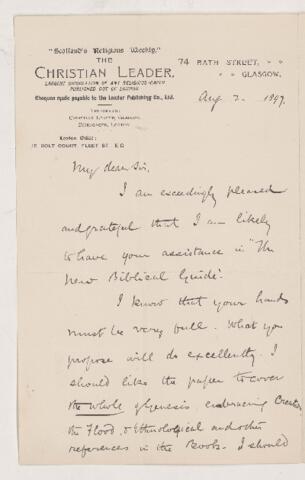 "Scotland's Religious Weekly."
THE
CHRISTIAN LEADER,
LARGEST CIRCULATION OF ANY RELIGIOUS PAPER
PUBLISHED OUT OF LONDON
Cheques made payable to the Leader Publishing Co., Ltd.
TELEGRAMS:
CHRISTIAN LEADER, GLASGOW.
London Office:
BOLT COURT, FLEET ST. E.C
74 BATH STREET,
GLASGOW,
Aug 2. 1897.
My dear Sir,
I am exceedingly pleased
and grateful that I am likely
to have your assistance in "The
New Biblical Guide".
I know that your hands
must be very full. What you
propose will do excellently. I
should like the paper to cover
the whole of Genesis, embracing Creation
the Flood, & Ethnological and other
references in the Book. I should